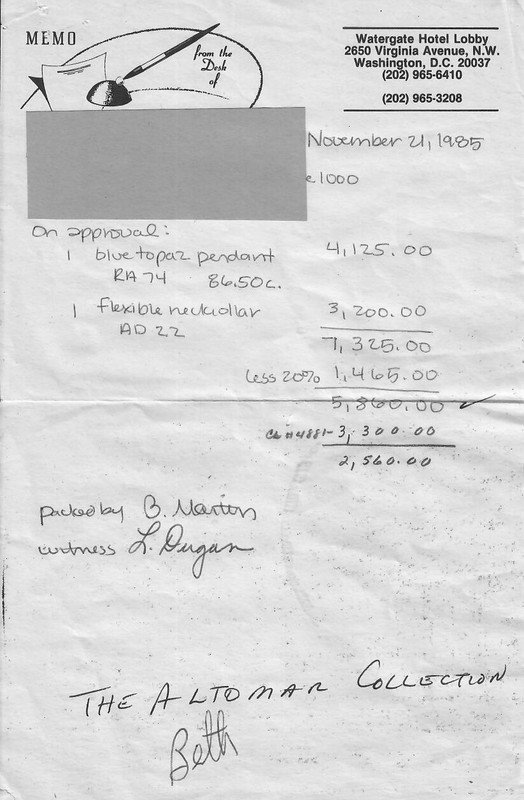 MEMO
from the
Desk
of
Watergate Hotel Lobby
2650 Virginia Avenue, N.W.
Washington, D.C. 20037
(202) 965-6410
(202) 965-3208
November 21, 1985
e 1000
On approval:
1 blue topaz pendant 4,125.00
RA 74 86.50c.
1 flexible neckcollar 3,200.00
AD 22
7,325.00
less 20% 1,465.00
5,860.00 ✓
Ck #4881- 3,300.00
2,560.00
packed by B. Martin
witness L. Dugan
THE ALTOMAR COLLECTION
Beth